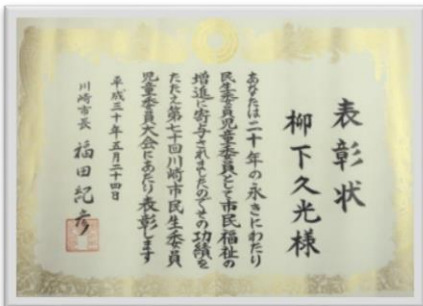 表彰状
柳下久光様
あなたは二十年の永きにわたり
民生委員児童委員として市民福祉の
増進に寄与されましたのでその功績を
たたえ第七十回川崎市民生委員
児童委員大会にあたり表彰します
平成三十年五月二十四日
川崎市長 福田紀彦